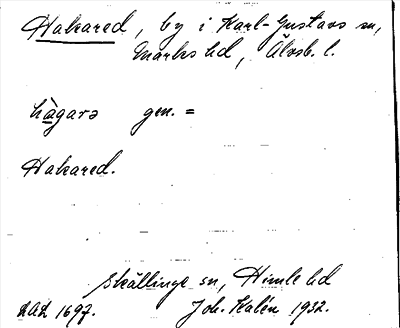 Hakared, by i Karl-Gustavs sn,
Marks hd, Älvsb. l.
hàgarə gen. =
Hakared.
Skällinge sn, Himle hd
DAL 1697. Joh. Kalén 1932.